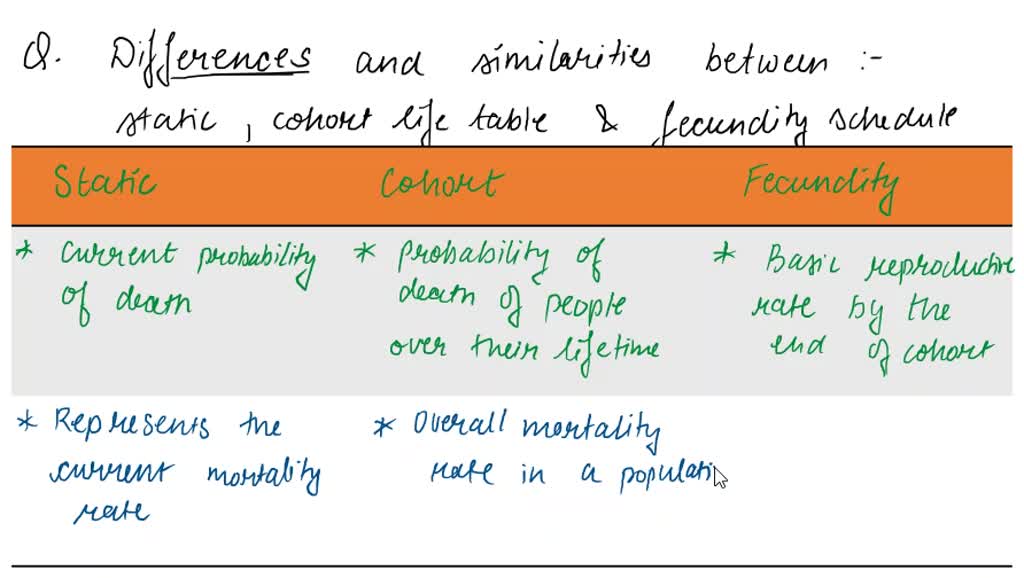 Q. Differences and similarities between :-
static, cohort life table & fecundity schedule
Static Cohort Fecundity
* Current probability of death
* Probability of death of people over their lifetime
* Basic reproductive rate by the end of cohort
* Represents the current mortality rate
* Overall mortality rate in a populati